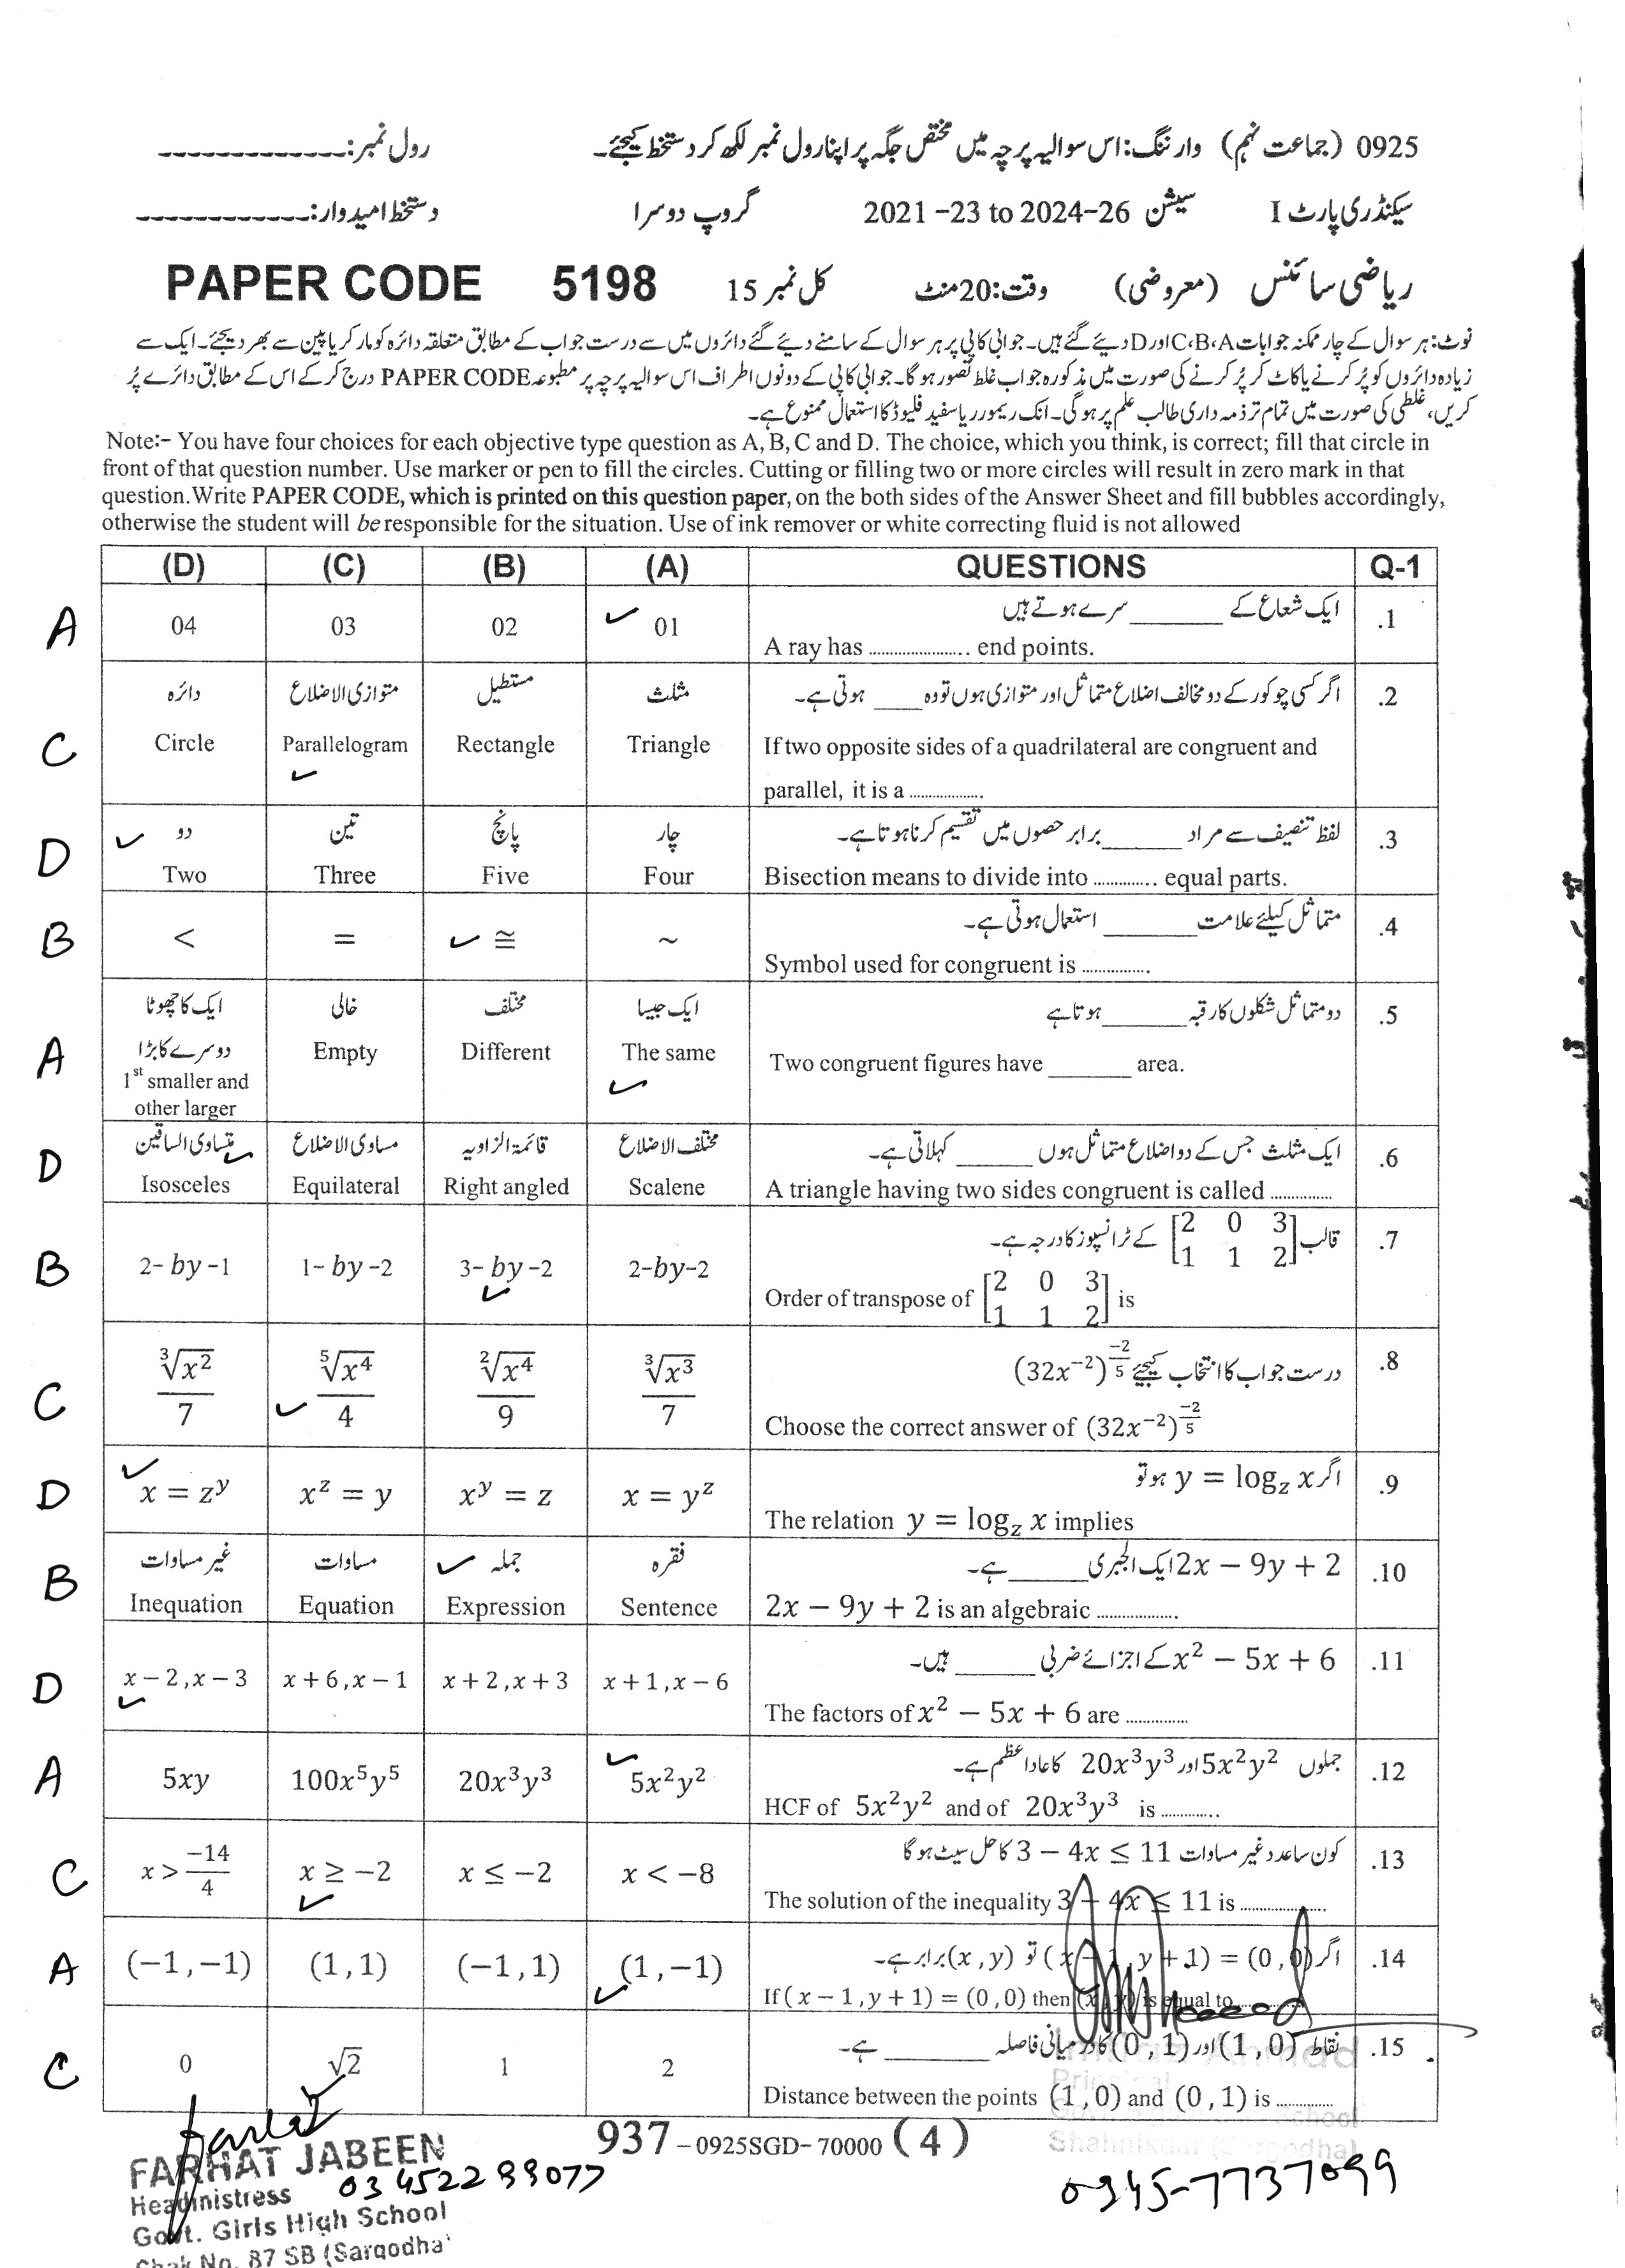 0925 (جماعت نہم) وارننگ: اس سوالیہ پرچہ میں مختص جگہ پر اپنا رول نمبر لکھ کر دستخط کیجئے۔ رول نمبر:_____________
سیکنڈری پارٹ I سیشن 2021 -23 to 2024-26 گروپ دوسرا دستخط امیدوار:_____________
ریاضی سائنس (معروضی) وقت:20منٹ کل نمبر 15 PAPER CODE 5198
نوٹ: ہر سوال کے چار ممکنہ جوابات C،B،A اور D دیئے گئے ہیں۔ جوابی کاپی پر ہر سوال کے سامنے دیئے گئے دائروں میں سے درست جواب کے مطابق متعلقہ دائرہ کو مارکر یا پین سے بھر دیجئے۔ ایک سے
زیادہ دائروں کو پُر کرنے یا کاٹ کر پُر کرنے کی صورت میں مذکورہ جواب غلط تصور ہو گا۔ جوابی کاپی کے دونوں اطراف اس سوالیہ پرچہ پر مطبوعہ PAPER CODE درج کر کے اس کے مطابق دائرے پُر
کریں، غلطی کی صورت میں تمام تر ذمہ داری طالب علم پر ہو گی۔ انک ریمورر یا سفید فلیوڈ کا استعمال ممنوع ہے۔
Note:- You have four choices for each objective type question as A, B, C and D. The choice, which you think, is correct; fill that circle in
front of that question number. Use marker or pen to fill the circles. Cutting or filling two or more circles will result in zero mark in that
question.Write PAPER CODE, which is printed on this question paper, on the both sides of the Answer Sheet and fill bubbles accordingly,
otherwise the student will be responsible for the situation. Use of ink remover or white correcting fluid is not allowed
(D) (C) (B) (A) QUESTIONS Q-1
ایک شعاع کے ______ سرے ہوتے ہیں .1
A 04 03 02 ✓ 01
A ray has .................... end points.
دائرہ متوازی الاضلاع مستطیل مثلث اگر کسی چوکور کے دو مخالف اضلاع متماثل اور متوازی ہوں تو وہ ____ ہوتی ہے۔ .2
C Circle Parallelogram ✓ Rectangle Triangle If two opposite sides of a quadrilateral are congruent and
parallel, it is a ..................
✓ دو تین پانچ چار لفظ تنصیف سے مراد ______ برابر حصوں میں تقسیم کرنا ہوتا ہے۔ .3
D Two Three Five Four Bisection means to divide into ............. equal parts.
متماثل کیلئے علامت ______ استعمال ہوتی ہے۔ .4
B < = ✓ ≅ ~
Symbol used for congruent is ...............
ایک کا چھوٹا خالی مختلف ایک جیسا دو متماثل شکلوں کا رقبہ ______ ہوتا ہے .5
دوسرے کا بڑا
A 1st smaller and Empty Different The same ✓ Two congruent figures have ______ area.
other larger
متساوی الساقین ✓ مساوی الاضلاع قائمۃ الزاویہ مختلف الاضلاع ایک مثلث جس کے دو اضلاع متماثل ہوں ______ کہلاتی ہے۔ .6
D Isosceles Equilateral Right angled Scalene A triangle having two sides congruent is called ..............
قالب [2 0 3 / 1 1 2] کے ٹرانسپوز کا درجہ ہے۔ .7
B 2- by -1 1- by -2 3- by -2 ✓ 2-by-2
Order of transpose of [2 0 3 / 1 1 2] is
درست جواب کا انتخاب کیجئے (32x⁻²)^(-2/5) .8
C ∛x²/7 ✓ ⁵√x⁴/4 ²√x⁴/9 ∛x³/7
Choose the correct answer of (32x⁻²)^(-2/5)
اگر y = log_z x ہو تو .9
D ✓ x = z^y x^z = y x^y = z x = y^z
The relation y = log_z x implies
غیر مساوات مساوات ✓ جملہ فقرہ 2x − 9y + 2 ایک الجبری ______ ہے۔ .10
B Inequation Equation Expression Sentence 2x − 9y + 2 is an algebraic ..................
x² − 5x + 6 کے اجزائے ضربی ______ ہیں۔ .11
D x − 2 ,x − 3 ✓ x + 6 ,x − 1 x + 2 ,x + 3 x + 1 ,x − 6
The factors of x² − 5x + 6 are ..............
جملوں 5x²y² اور 20x³y³ کا عاد اعظم ہے۔ .12
A 5xy 100x⁵y⁵ 20x³y³ ✓ 5x²y²
HCF of 5x²y² and of 20x³y³ is .............
کون سا عدد غیر مساوات 3 − 4x ≤ 11 کا حل سیٹ ہو گا .13
C x > -14/4 x ≥ −2 ✓ x ≤ −2 x < −8
The solution of the inequality 3 − 4x ≤ 11 is ...................
اگر (x − 1 , y + 1) = (0 ,0) تو (x , y) برابر ہے۔ .14
A (−1 ,−1) (1 ,1) (−1 ,1) ✓ (1 ,−1)
If ( x − 1 ,y + 1) = (0 ,0) then (x , y) is equal to ............
نقاط (1 ,0) اور (0 , 1) کا درمیانی فاصلہ ______ ہے۔ .15
C 0 √2 ✓ 1 2
Distance between the points (1 ,0) and (0 ,1) is .............
Principal
Shahnikdar (Sargodha)
937-0925SGD-70000 (4)
FARHAT JABEEN
03452299077
0345-7737099
Headmistress
Govt. Girls High School
Chak No. 87 SB (Sargodha)